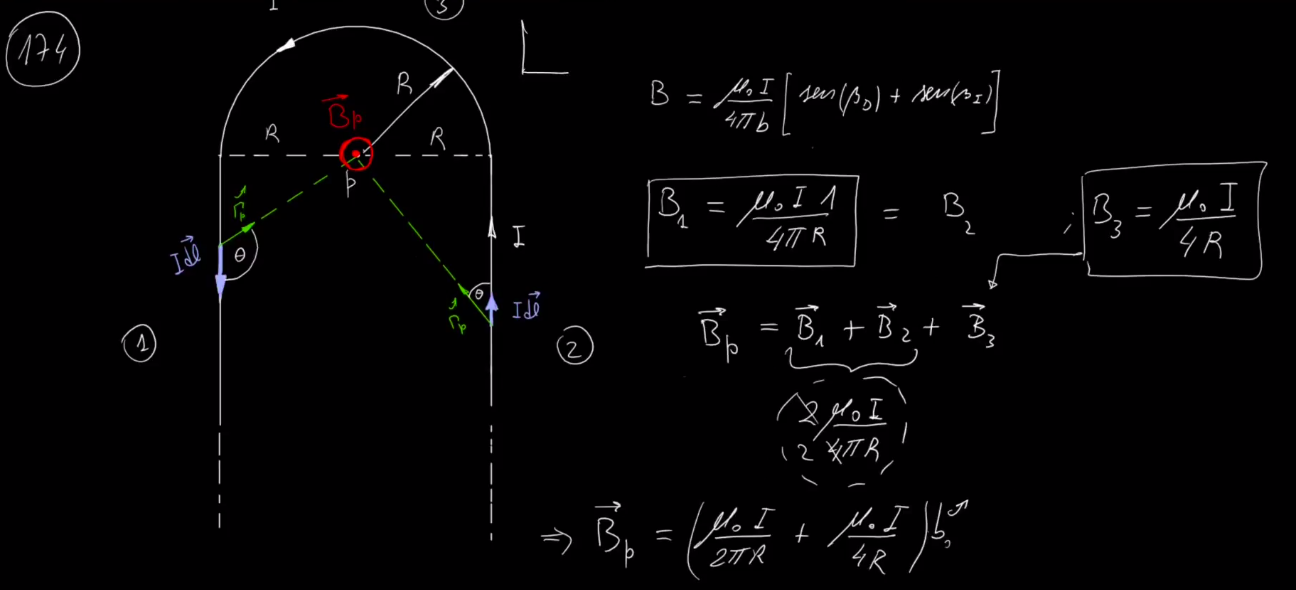 174
I
3
R
B⃗p
R
R
p
r⃗p
θ
I dl⃗
I
θ
I dl⃗
r⃗p
1
2
B = μ₀ I / 4πb [ sen(β_D) + sen(β_I) ]
B₁ = μ₀ I 1 / 4π R = B₂ ; B₃ = μ₀ I / 4 R
B⃗p = B⃗₁ + B⃗₂ + B⃗₃
2 μ₀ I / 2 4π R
⇒ B⃗p = ( μ₀ I / 2πR + μ₀ I / 4R )